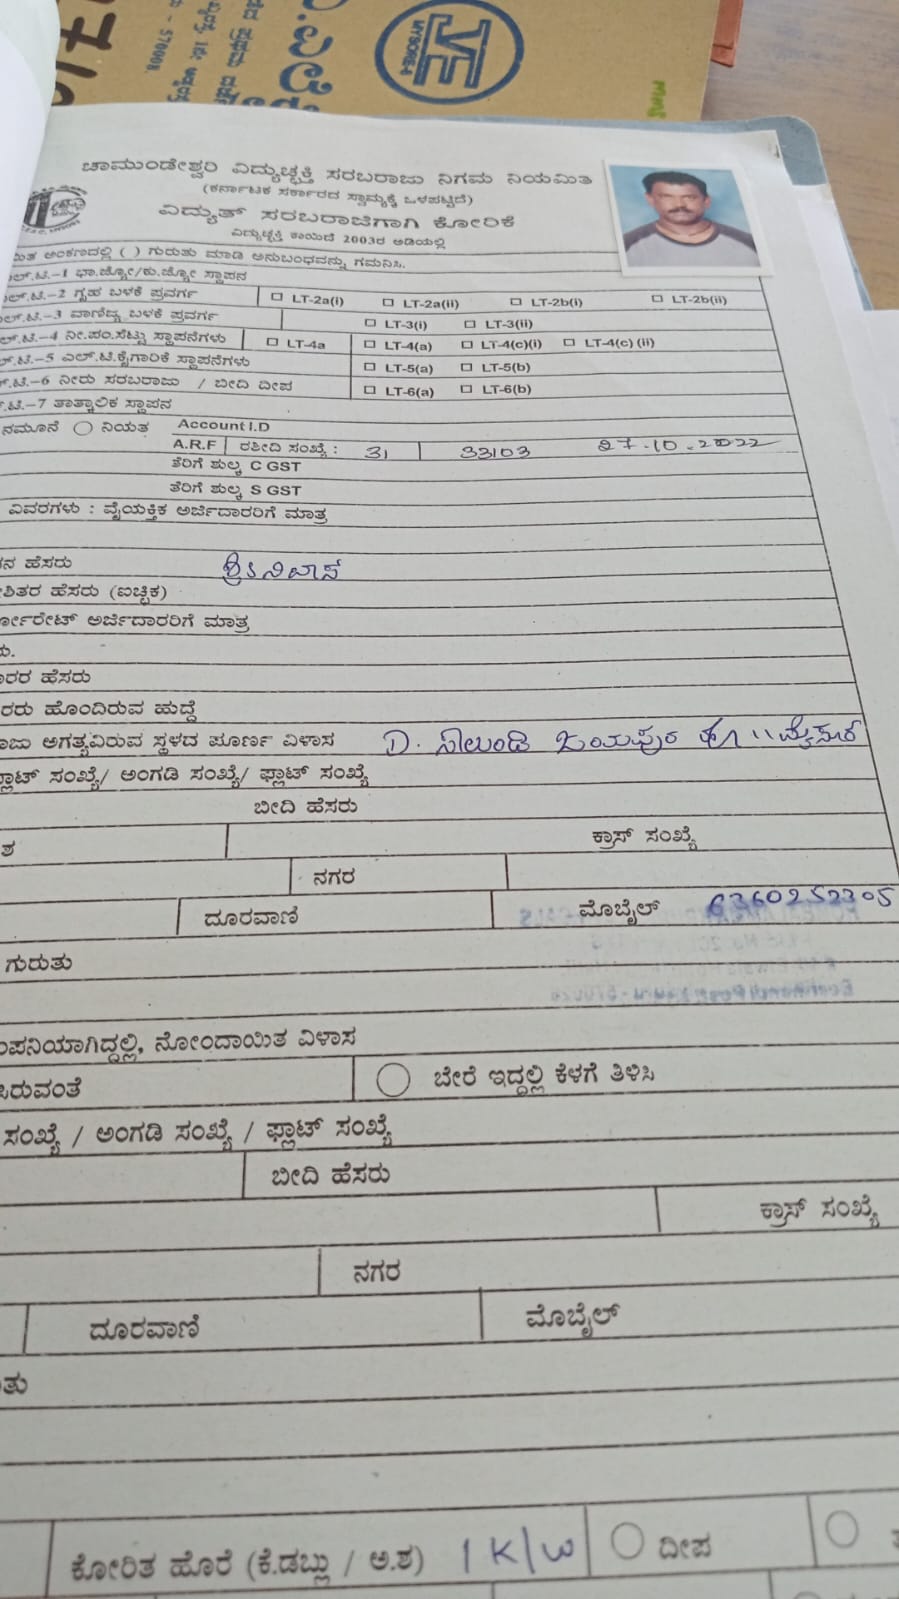 MYSORE-1
ಚಾಮುಂಡೇಶ್ವರಿ ವಿದ್ಯುಚ್ಛಕ್ತಿ ಸರಬರಾಜು ನಿಗಮ ನಿಯಮಿತ
(ಕರ್ನಾಟಕ ಸರ್ಕಾರದ ಸ್ವಾಮ್ಯಕ್ಕೆ ಒಳಪಟ್ಟಿದೆ)
ವಿದ್ಯುತ್ ಸರಬರಾಜಿಗಾಗಿ ಕೋರಿಕೆ
ವಿದ್ಯುಚ್ಛಕ್ತಿ ಕಾಯಿದೆ 2003ರ ಅಡಿಯಲ್ಲಿ
ಅಂಕಣದಲ್ಲಿ ( ) ಗುರುತು ಮಾಡಿ ಅನುಬಂಧವನ್ನು ಗಮನಿಸಿ.
ಲ್.ಟಿ.-1 ಭಾ.ಜ್ಯೋ/ಕು.ಜ್ಯೋ ಸ್ಥಾಪನ
ಲ್.ಟಿ.-2 ಗೃಹ ಬಳಕೆ ಪ್ರವರ್ಗ LT-2a(i) LT-2a(ii) LT-2b(i) LT-2b(ii)
ಲ್.ಟಿ.-3 ವಾಣಿಜ್ಯ ಬಳಕೆ ಪ್ರವರ್ಗ LT-3(i) LT-3(ii)
ಲ್.ಟಿ.-4 ನೀ.ಪಂ.ಸೆಟ್ಟು ಸ್ಥಾಪನೆಗಳು LT-4a LT-4(a) LT-4(c)(i) LT-4(c) (ii)
ಲ್.ಟಿ.-5 ಎಲ್.ಟಿ.ಕೈಗಾರಿಕೆ ಸ್ಥಾಪನೆಗಳು LT-5(a) LT-5(b)
.ಟಿ.-6 ನೀರು ಸರಬರಾಜು / ಬೀದಿ ದೀಪ LT-6(a) LT-6(b)
.ಟಿ.-7 ತಾತ್ಕಾಲಿಕ ಸ್ಥಾಪನ
ನಮೂನೆ ನಿಯತ Account I.D
A.R.F ರಶೀದಿ ಸಂಖ್ಯೆ : 31 33103 27-10-2022
ತೆರಿಗೆ ಶುಲ್ಕ C GST
ತೆರಿಗೆ ಶುಲ್ಕ S GST
ವಿವರಗಳು : ವೈಯಕ್ತಿಕ ಅರ್ಜಿದಾರರಿಗೆ ಮಾತ್ರ
ನ ಹೆಸರು ಶ್ರೀನಿವಾಸ
ಶಿತರ ಹೆಸರು (ಐಚ್ಛಿಕ)
ರ್ಪೋರೇಟ್ ಅರ್ಜಿದಾರರಿಗೆ ಮಾತ್ರ
ರರ ಹೆಸರು
ರರು ಹೊಂದಿರುವ ಹುದ್ದೆ
ಅಗತ್ಯವಿರುವ ಸ್ಥಳದ ಪೂರ್ಣ ವಿಳಾಸ D. ಸಾಲುಂಡಿ ಜಯಪುರ ಹೋ ॥ ಮೈಸೂರು
ಪ್ಲಾಟ್ ಸಂಖ್ಯೆ/ ಅಂಗಡಿ ಸಂಖ್ಯೆ/ ಫ್ಲಾಟ್ ಸಂಖ್ಯೆ
ಬೀದಿ ಹೆಸರು
ಶ ಕ್ರಾಸ್ ಸಂಖ್ಯೆ
ನಗರ
ದೂರವಾಣಿ ಮೊಬೈಲ್ 6360252305
ಗುರುತು
ಂಪನಿಯಾಗಿದ್ದಲ್ಲಿ, ನೋಂದಾಯಿತ ವಿಳಾಸ
ಸಿರುವಂತೆ ಬೇರೆ ಇದ್ದಲ್ಲಿ ಕೆಳಗೆ ತಿಳಿಸಿ
ಸಂಖ್ಯೆ / ಅಂಗಡಿ ಸಂಖ್ಯೆ / ಫ್ಲಾಟ್ ಸಂಖ್ಯೆ
ಬೀದಿ ಹೆಸರು
ಕ್ರಾಸ್ ಸಂಖ್ಯೆ
ನಗರ
ದೂರವಾಣಿ ಮೊಬೈಲ್
ತು
ಕೋರಿತ ಹೊರೆ (ಕೆ.ಡಬ್ಲು / ಅ.ಶ) 1 K/W ದೀಪ